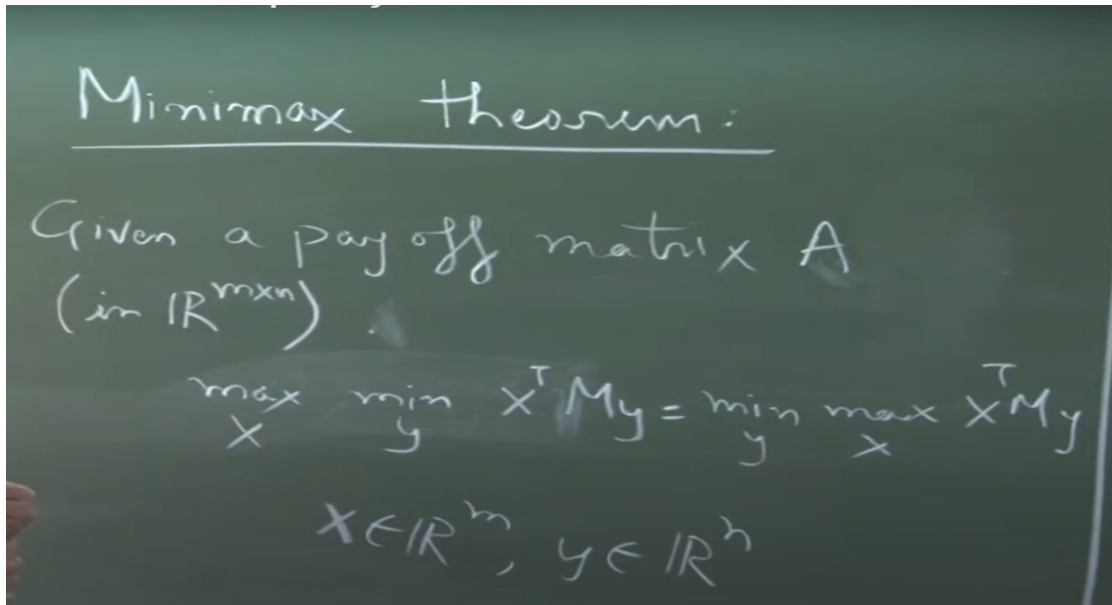 Minimax theorem:
Given a pay off matrix A
(in ℝ^{m×n}).
max_x min_y x^T My = min_y max_x x^T My
x ∈ ℝ^m, y ∈ ℝ^n